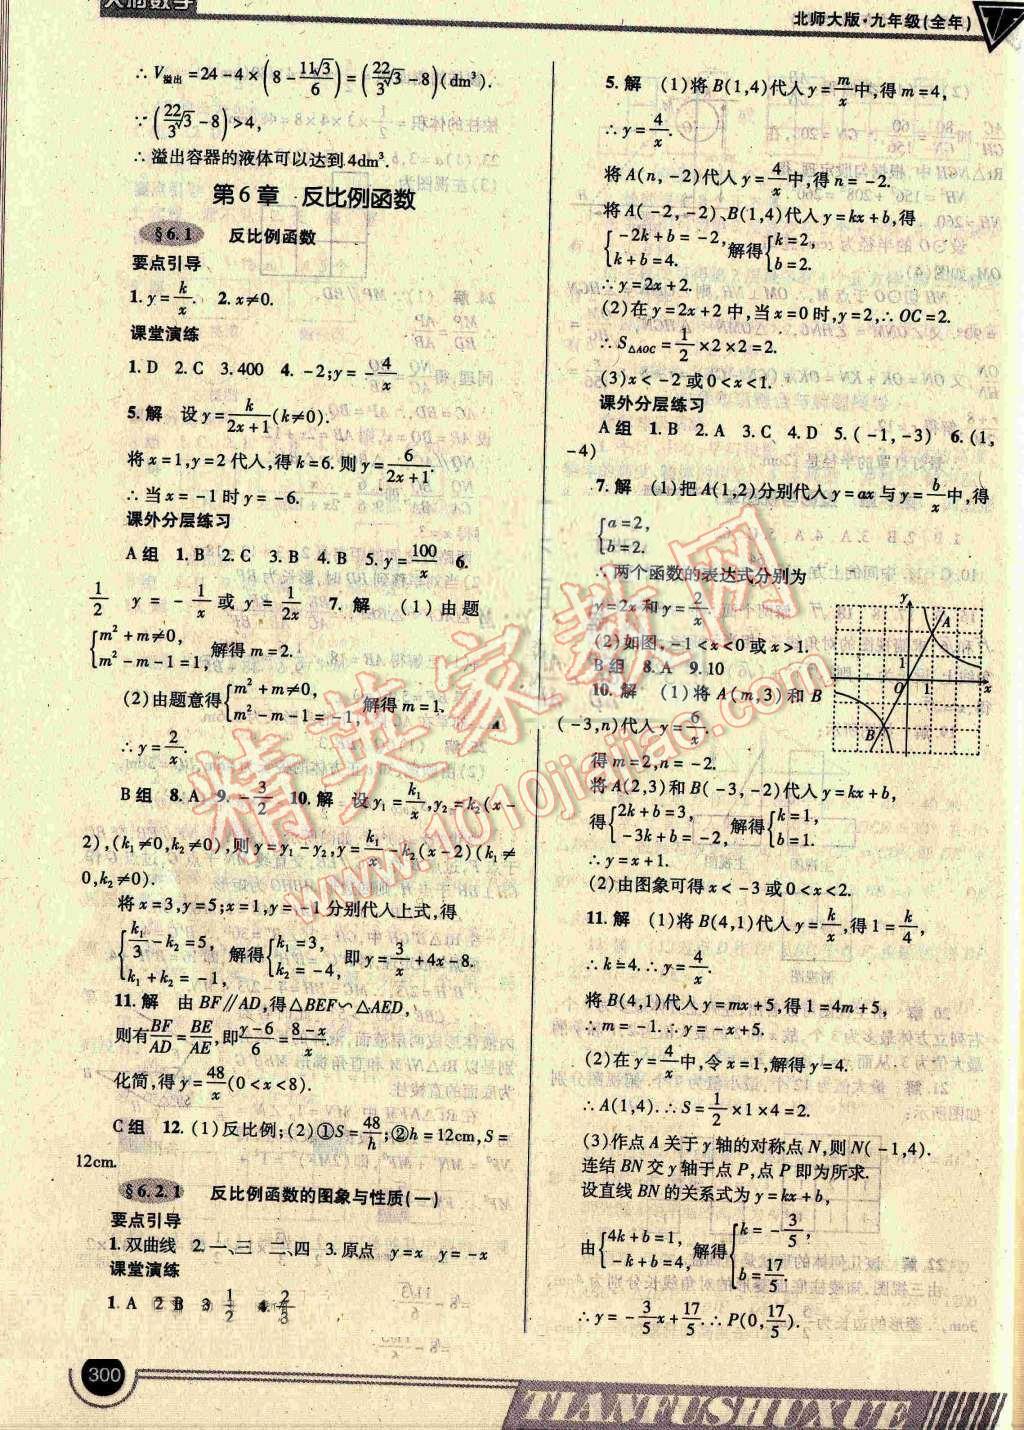 天府数学
北师大版·九年级(全年)
∴V溢出=24-4×(8-11√3/6)=(22/3√3-8)(dm³).
∵(22/3√3-8)>4,
∴溢出容器的液体可以达到4dm³.
第6章 反比例函数
§6.1 反比例函数
要点引导
1.y=k/x. 2.x≠0.
课堂演练
1.D 2.C 3.400 4.-2;y=-4/x
5.解 设y=k/(2x+1)(k≠0).
将x=1,y=2代入,得k=6.则y=6/(2x+1).
∴当x=-1时y=-6.
课外分层练习
A组 1.B 2.C 3.B 4.B 5.y=100/x 6.
1/2 y=-1/x或y=1/2x 7.解 (1)由题
{m²+m≠0, m²-m-1=1, 解得m=2.
(2)由题意得{m²+m≠0, m²-m-1=-1, 解得m=1.
∴y=2/x.
B组 8.A 9.-3/2 10.解 设y₁=k₁/x,y₂=k₂(x-
2),(k₁≠0,k₂≠0),则y=y₁-y₂,y=k₁/x-k₂(x-2)(k₁≠
0,k₂≠0).
将x=3,y=5;x=1,y=-1分别代入上式,得
{k₁/3-k₂=5, k₁+k₂=-1, 解得{k₁=3, k₂=-4, 即y=3/x+4x-8.
11.解 由BF∥AD,得△BEF∽△AED,
则有BF/AD=BE/AE,即(y-6)/6=(8-x)/x.
化简,得y=48/x(0<x<8).
C组 12.(1)反比例;(2)①S=48/h;②h=12cm,S=
12cm.
§6.2.1 反比例函数的图象与性质(一)
要点引导
1.双曲线 2.一、三 二、四 3.原点 y=x y=-x
课堂演练
1.A 2.B 3.1/2 4.2/3
5.解 (1)将B(1,4)代入y=m/x中,得m=4,
∴y=4/x.
将A(n,-2)代入y=4/x中,得n=-2.
将A(-2,-2)、B(1,4)代入y=kx+b,得
{-2k+b=-2, k+b=4. 解得{k=2, b=2.
∴y=2x+2.
(2)在y=2x+2中,当x=0时,y=2,∴OC=2.
∴S△AOC=1/2×2×2=2.
(3)x<-2或0<x<1.
课外分层练习
A组 1.B 2.A 3.C 4.D 5.(-1,-3) 6.(1,
-4)
7.解 (1)把A(1,2)分别代入y=ax与y=b/x中,得
{a=2, b=2.
∴两个函数的表达式分别为
y=2x和y=2/x.
(2)如图,-1<x<0或x>1.
B组 8.A 9.10
10.解 (1)将A(m,3)和B
(-3,n)代入y=6/x.
得m=2,n=-2.
将A(2,3)和B(-3,-2)代入y=kx+b,
得{2k+b=3, -3k+b=-2. 解得{k=1, b=1.
∴y=x+1.
(2)由图象可得x<-3或0<x<2.
y A 1 O 1 x B
11.解 (1)将B(4,1)代入y=k/x,得1=k/4,
∴k=4.∴y=4/x.
将B(4,1)代入y=mx+5,得1=4m+5,
∴m=-1.∴y=-x+5.
(2)在y=4/x中,令x=1,解得y=4.
∴A(1,4).∴S=1/2×1×4=2.
(3)作点A关于y轴的对称点N,则N(-1,4).
连结BN交y轴于点P,点P即为所求.
设直线BN的关系式为y=kx+b,
由{4k+b=1, -k+b=4, 解得{k=-3/5, b=17/5.
∴y=-3/5x+17/5.∴P(0,17/5).
300
TIANFUSHUXUE
精英家教网
www.1010jiajiao.com